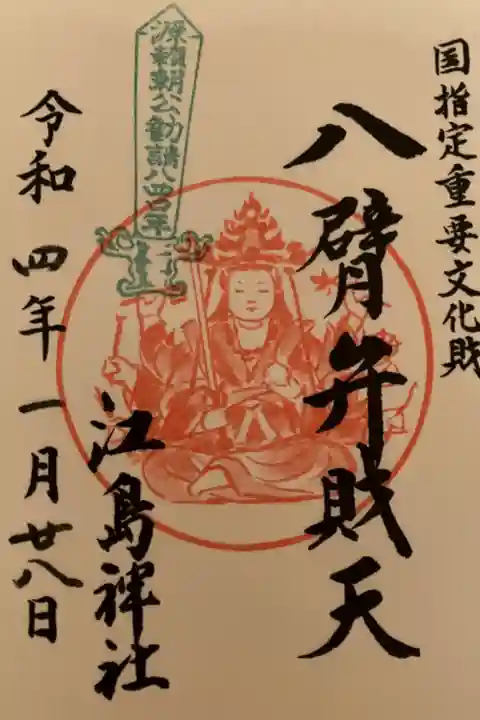 国指定重要文化財
八臂弁財天
源頼朝公勧請八四〇年
江島神社
令和四年一月廿八日